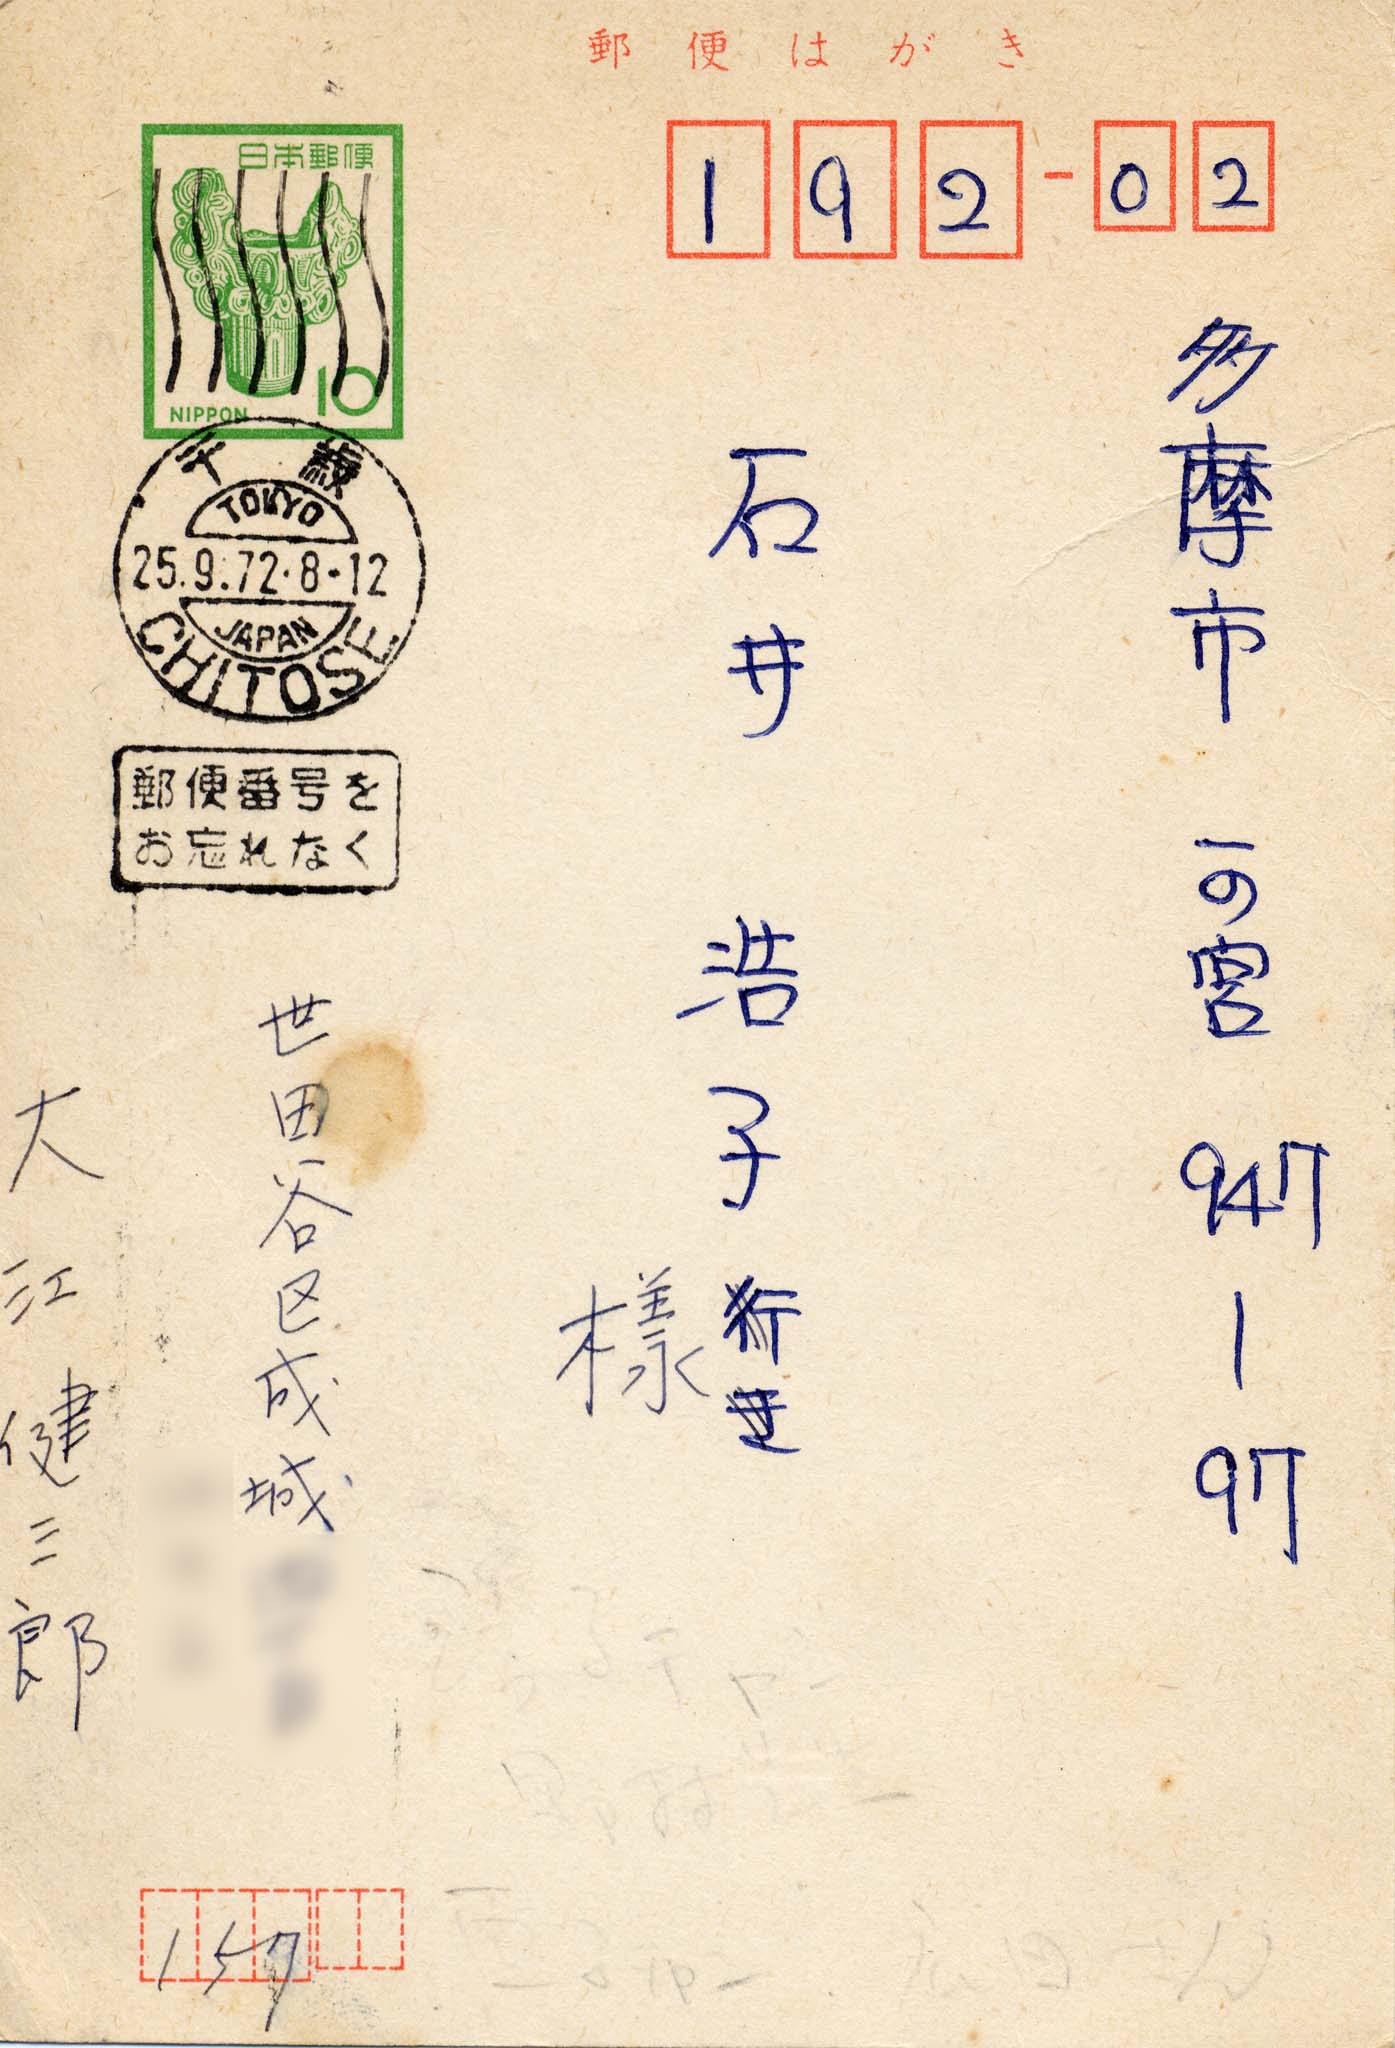 郵便はがき
192-02
日本郵便
NIPPON 10
千歳
TOKYO
25.9.72.8-12
JAPAN
CHITOSE
郵便番号を
お忘れなく
多摩市 一の宮 947-97
石井 浩子行き
様
世田谷区成城
大江健三郎
157